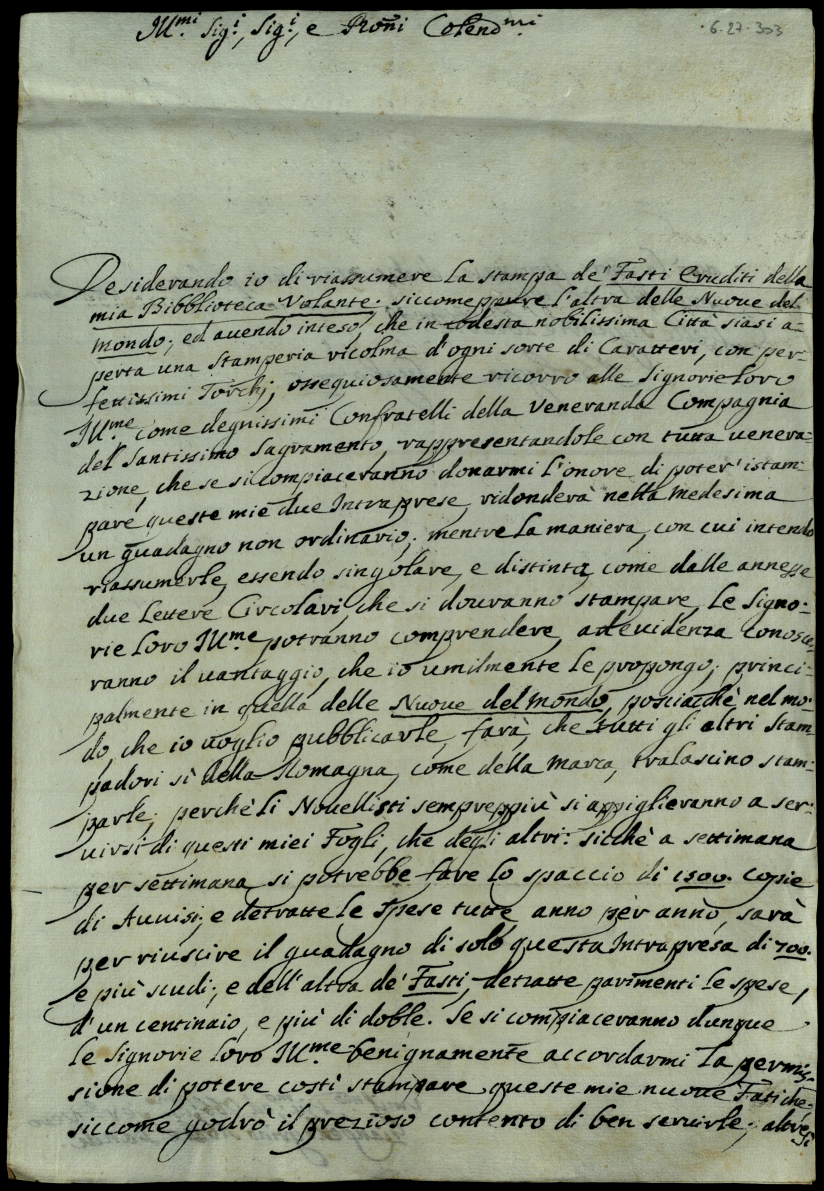 Ill.mi Sig.i, Sig.i, e Pro̅ni Colend.mi
6-27-303
Desiderando io di riassumere la stampa de' Fasti Eruditi della
mia Bibblioteca Volante; siccomeppure l'altra delle Nuove del
Mondo; ed avendo inteso, che in codesta nobilissima Città siasi a-
perta una Stamperia ricolma d'ogni sorte di Caratteri, con per-
fettissimi Torchj; ossequiosamente ricorro alle Signorie Loro
Ill.me come degnissimi Confratelli della Veneranda Compagnia
del Santissimo Sagramento, rappresentandole con tutta venera-
zione, che se si compiaceranno donarmi l'onore di poter' istam-
pare queste mie due Intraprese, ridonderà nella medesima
un guadagno non ordinario; mentre la maniera, con cui intendo
riassumerle, essendo singolare, e distinta, come dalle annesse
due Lettere Circolari, che si douranno stampare, le Signo-
rie Loro Ill.me potranno comprendere, ad evidenza conosce-
ranno il vantaggio, che io umilmente le propongo; princi-
palmente in quella delle Nuove del Mondo, posciacchè nel mo-
do, che io voglio pubblicarle, farà, che tutti gli altri Stam-
padori sì della Romagna, come della Marca, tralascino stam-
parle; perchè li Novellisti sempreppiù si appiglieranno a ser-
virsi di questi miei Fogli, che degli altri: sicchè a settimana
per settimana si potrebbe fare lo spaccio di 1500. copie
di Avvisi; e detratte le Spese tutte, anno per anno, sarà
per riuscire il guadagno di solo questa Intrapresa di 700.
e più scudi; e dell'altra de' Fasti, detratte parimenti le spese,
d'un centinaio, e più di doble. Se si compiaceranno dunque
le Signorie Loro Ill.me benignamente accordarmi la permis-
sione di potere costì stampare queste mie nuove Fatiche;
siccome godrò il prezioso contento di ben servirle; altresì